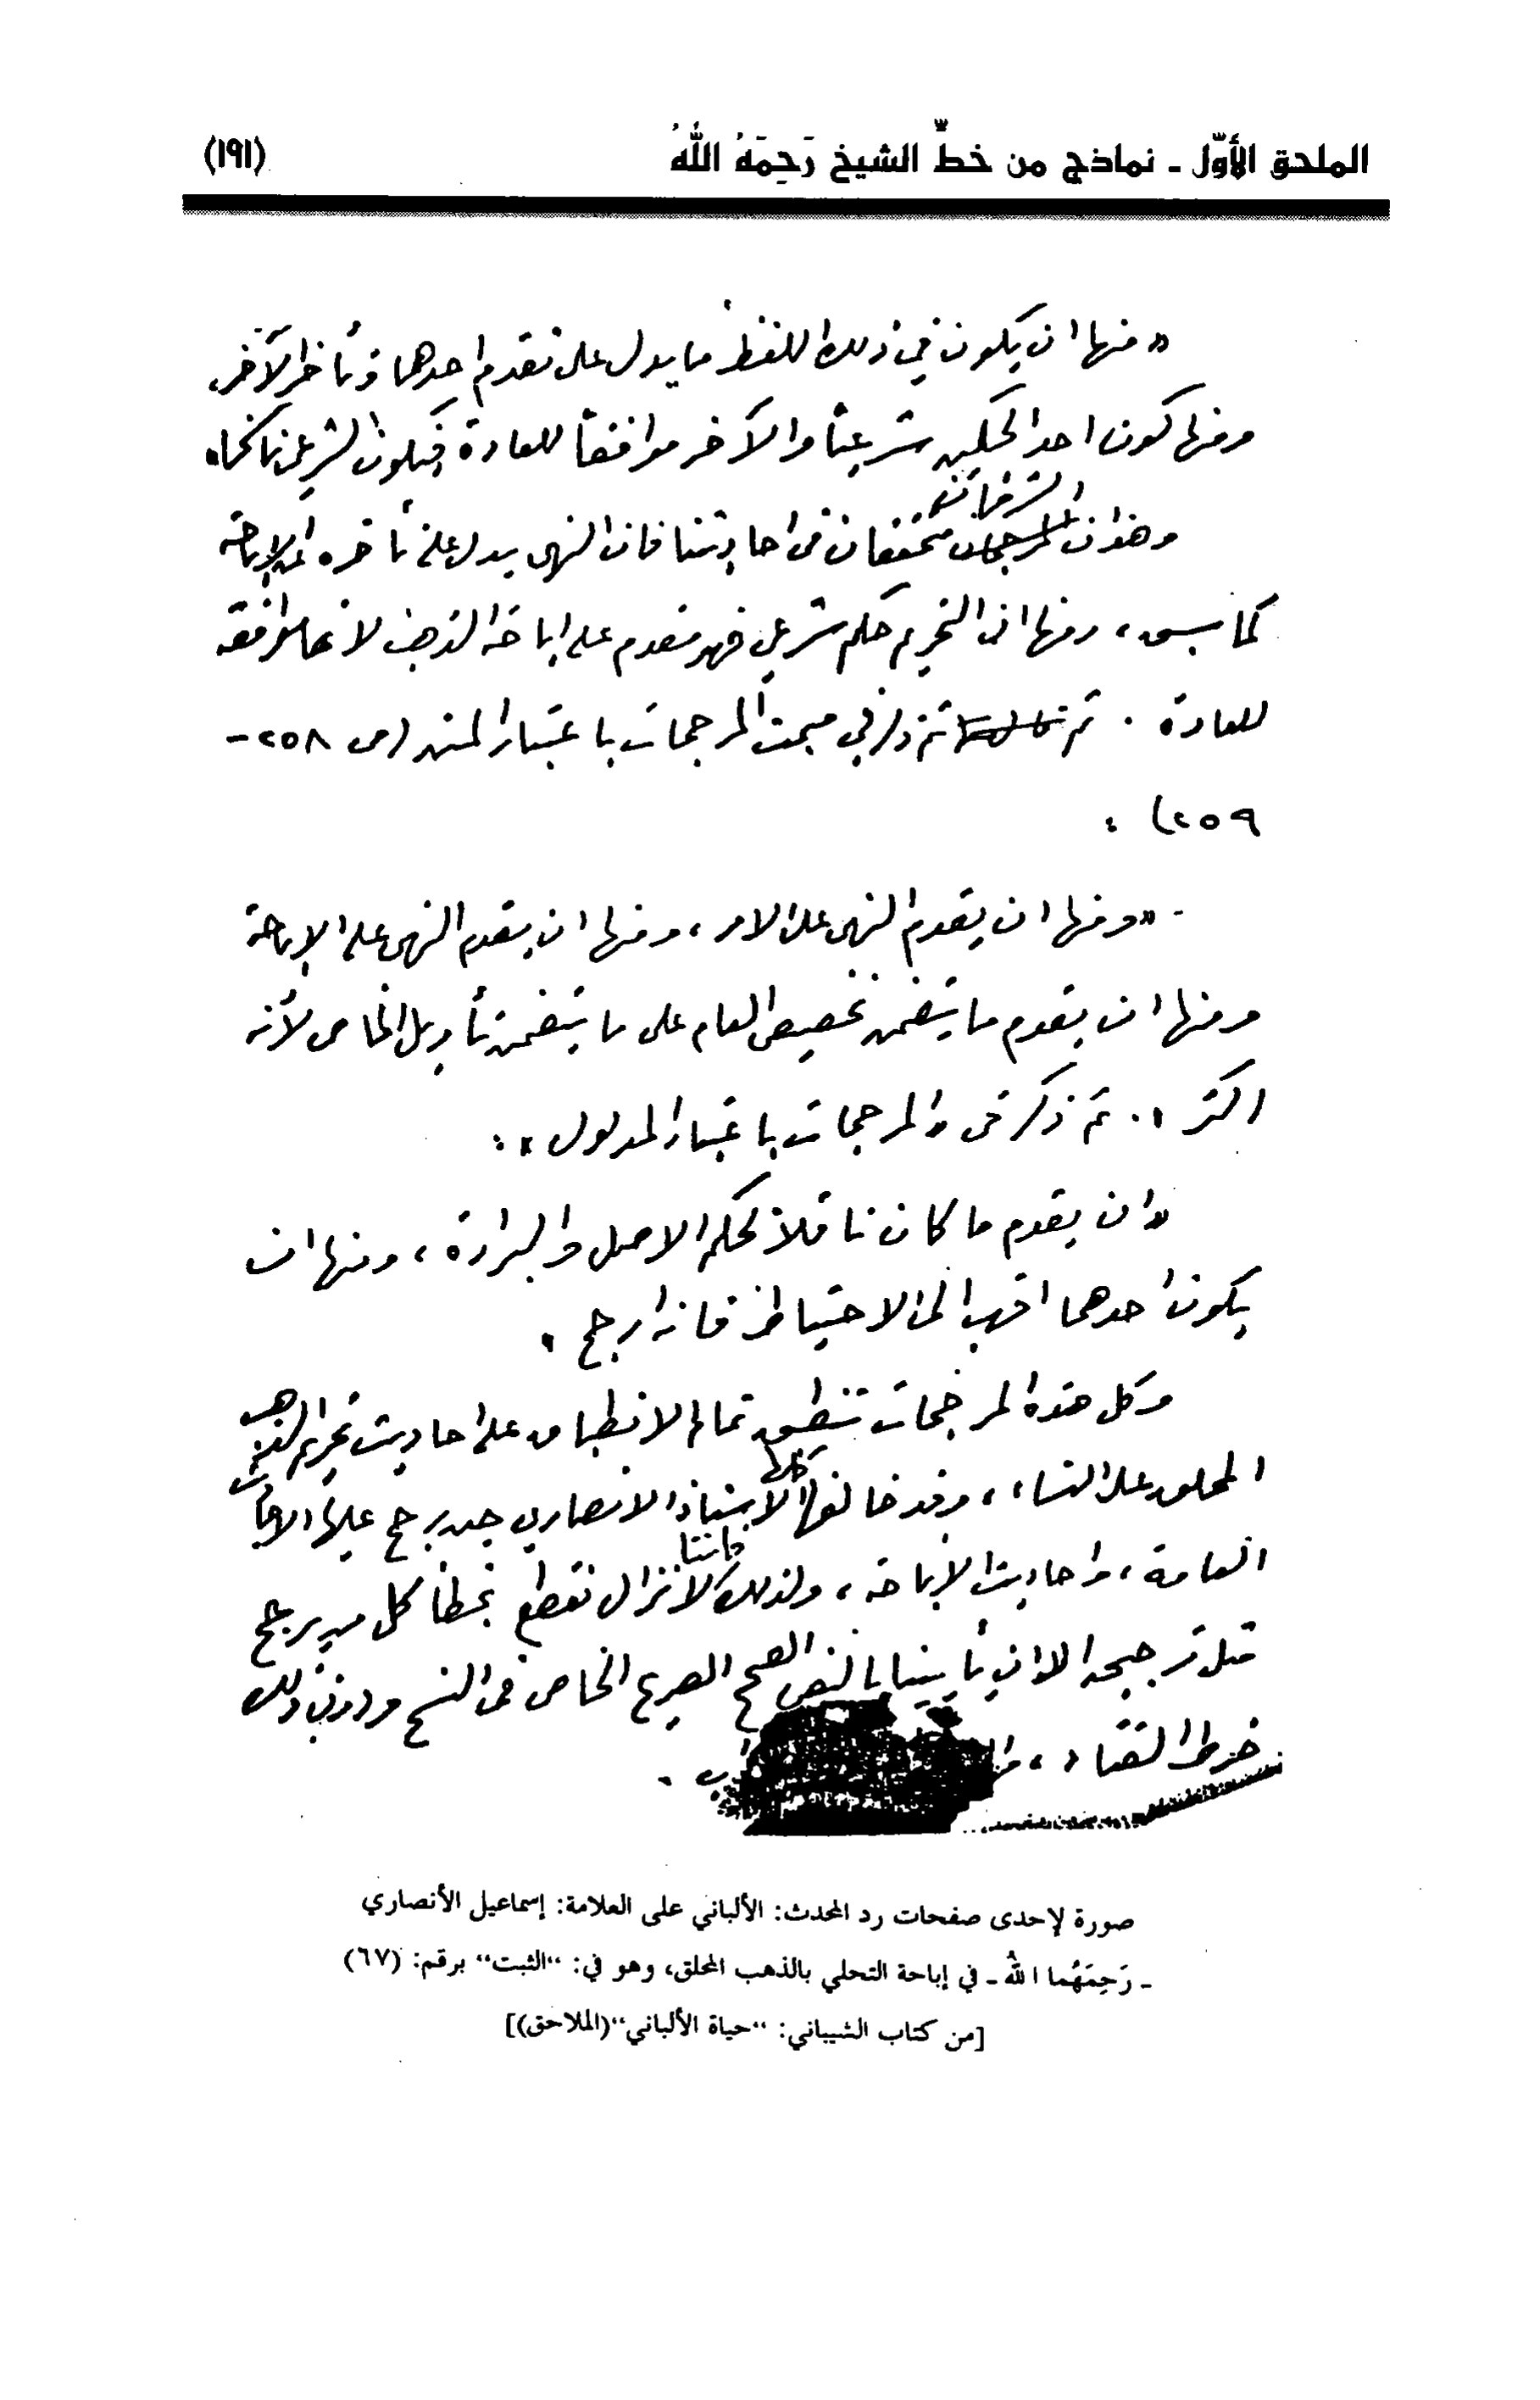 الملحق الأوّل - نماذج من خطِّ الشيخ رَحِمَهُ اللهُ (١٩١)
«منها ان يكون في ذلك اللفظ ما يدل على تقدم احدهما وتأخر الآخر
ومنها كون احد الحكمين شرعياً والآخر موافقاً للعادة فيكون الشرعي ناسخاً»
الشرطان
وهذان متحققان في احاديثنا فان النهي يدل على تأخره الاباحة
كما سبق، ومنها ان التحريم حكم شرعي فهو مقدم على اباحة الذهب لانها موافقة
للعادة . ثم ذكر في مبحث المرجحات باعتبار المتن (ص ٢٥٨ -
٢٥٩) :
- «ومنها ان يقدم النهي على الامر، ومنها ان يقدم النهي على الاباحة
ومنها ان يقدم ما يتضمن تخصيص العام على ما يتضمن تأويل الخاص لأنه
اكثر». ثم ذكر في «المرجحات باعتبار المدلول»:
«ان يقدم ما كان ناقلاً لحكم الاصل والبراءة، ومنها ان
يكون احدهما اقرب الى الاحتياط فانه ارجح».
وكل هذه المرجحات تنطبق تمام الانطباق على احاديث تحريم الذهب
المحلق على النساء، وقد خالفها كلها الاستاذ الانصاري حين رجح عليها
العامة، واحاديث الإباحة، ولذلك فاننا لا نزال نقطع بخطأ كل من يرجح
مثل ترجيحه الا ان يأتينا بالنص الصحيح الصريح الخاص في النسخ ودون ذلك
خرط القتاد،
صورة لإحدى صفحات رد المحدث: الألباني على العلامة: إسماعيل الأنصاري
- رَحِمَهُما اللهُ - في إباحة التحلي بالذهب المحلق، وهو في: "الثبت" برقم: (٦٧)
[من كتاب الشيباني: "حياة الألباني"(الملاحق)]